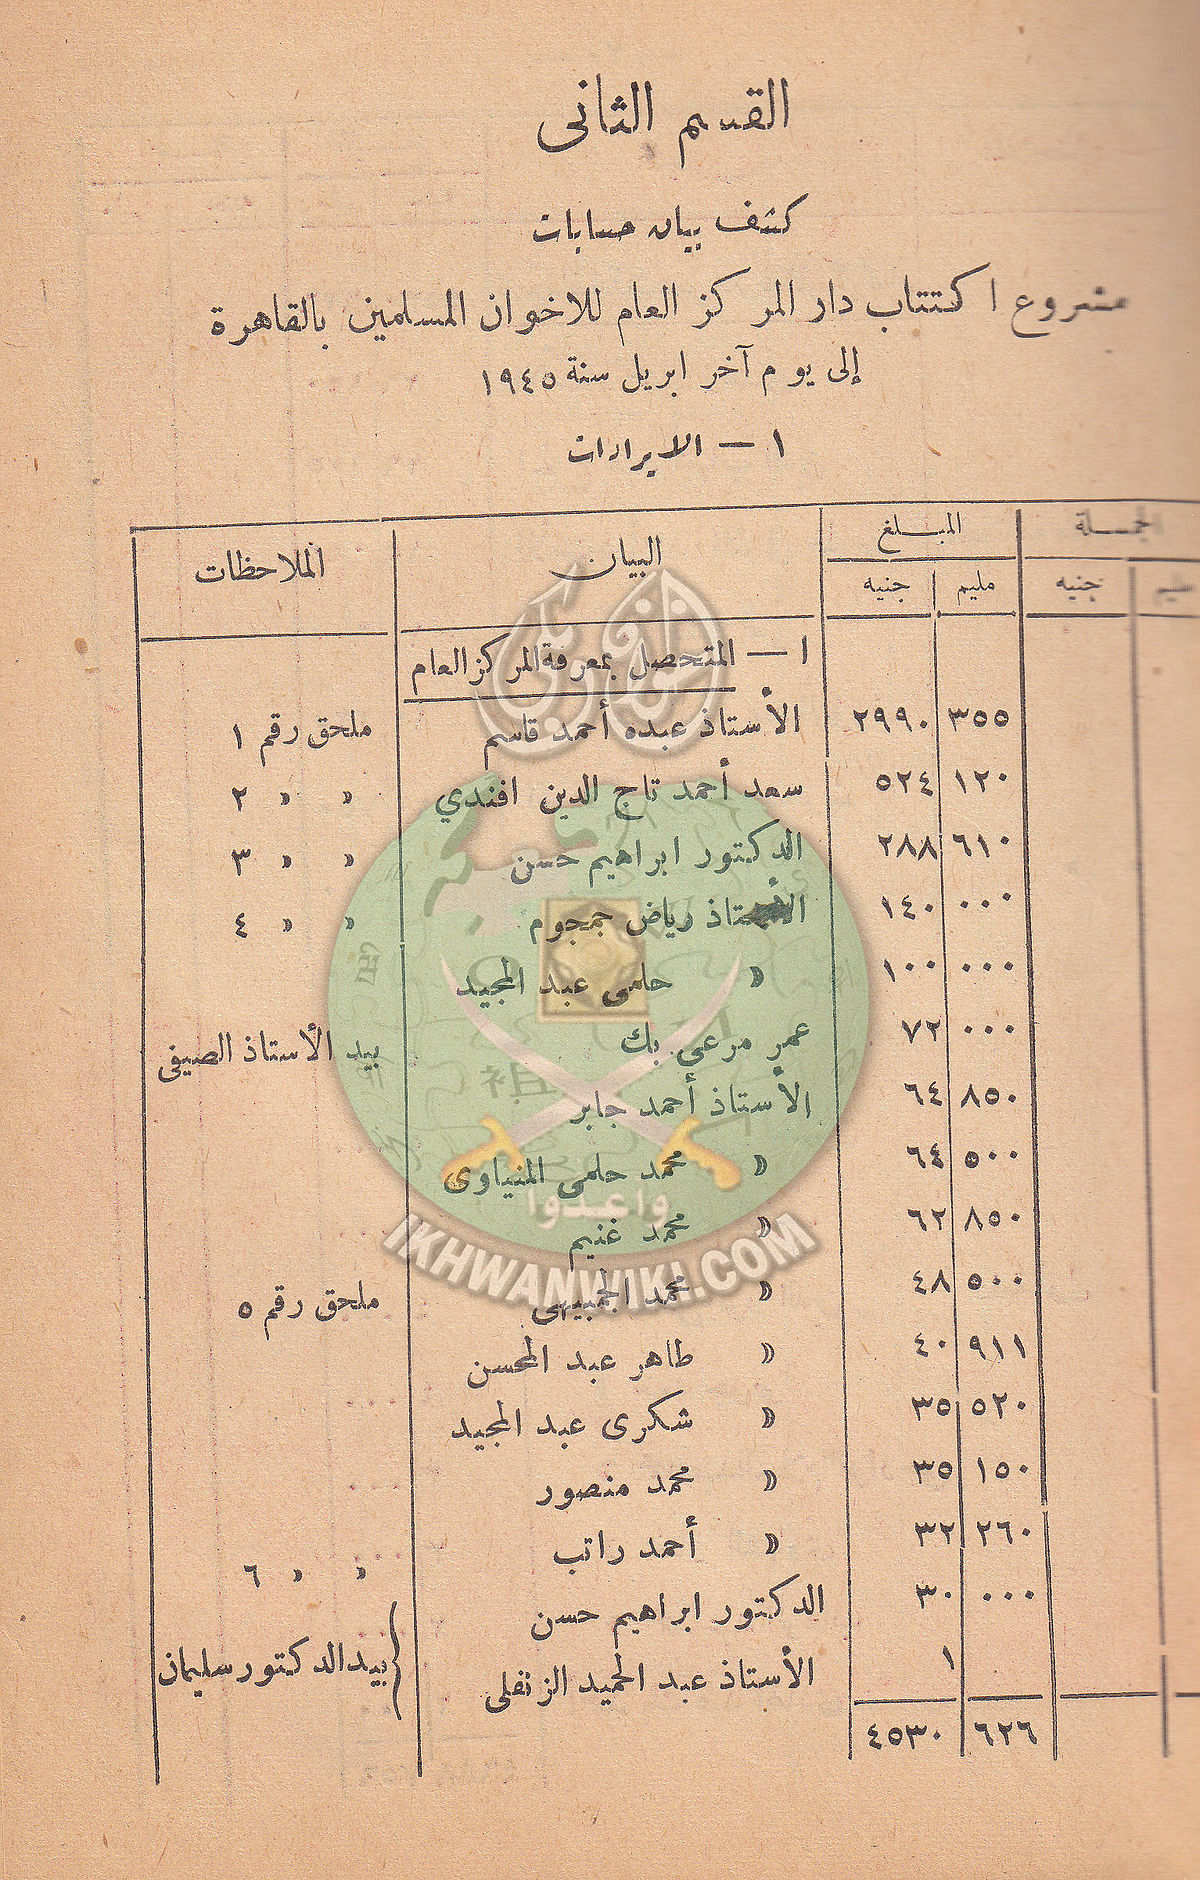 القسم الثانى
كشف بيان حسابات
مشروع اكتتاب دار المركز العام للاخوان المسلمين بالقاهرة
إلى يوم آخر ابريل سنة ١٩٤٥
١ — الايرادات
الجملة المبلغ البيان الملاحظات
مليم جنيه مليم جنيه
١ — المتحصل بمعرفة المركز العام
٣٥٥ ٢٩٩٠ الأستاذ عبده أحمد قاسم ملحق رقم ١
١٢٠ ٥٢٤ سعد أحمد تاج الدين افندي » » ٢
٦١٠ ٢٨٨ الدكتور ابراهيم حسن » » ٣
٠٠٠ ١٤٠ الأستاذ رياض جمجوم » » ٤
٠٠٠ ١٠٠ » حلمى عبد المجيد
٠٠٠ ٧٢ عمر مرعى بك بيد الأستاذ الصيفى
٨٥٠ ٦٤ الأستاذ أحمد جابر
٥٠٠ ٦٤ » محمد حلمى المنياوى
٨٥٠ ٦٢ » محمد غنيم
٥٠٠ ٤٨ » محمد الجبيهى ملحق رقم ٥
٩١١ ٤٠ » طاهر عبد المحسن
٥٢٠ ٣٥ » شكرى عبد المجيد
١٥٠ ٣٥ » محمد منصور
٢٦٠ ٣٢ » أحمد راتب » » ٦
٠٠٠ ٣٠ الدكتور ابراهيم حسن
١ الأستاذ عبد الحميد الزنفلى } بيد الدكتور سليمان
٦٢٦ ٤٥٣٠
وأعدوا
IKHWANWIKI.COM